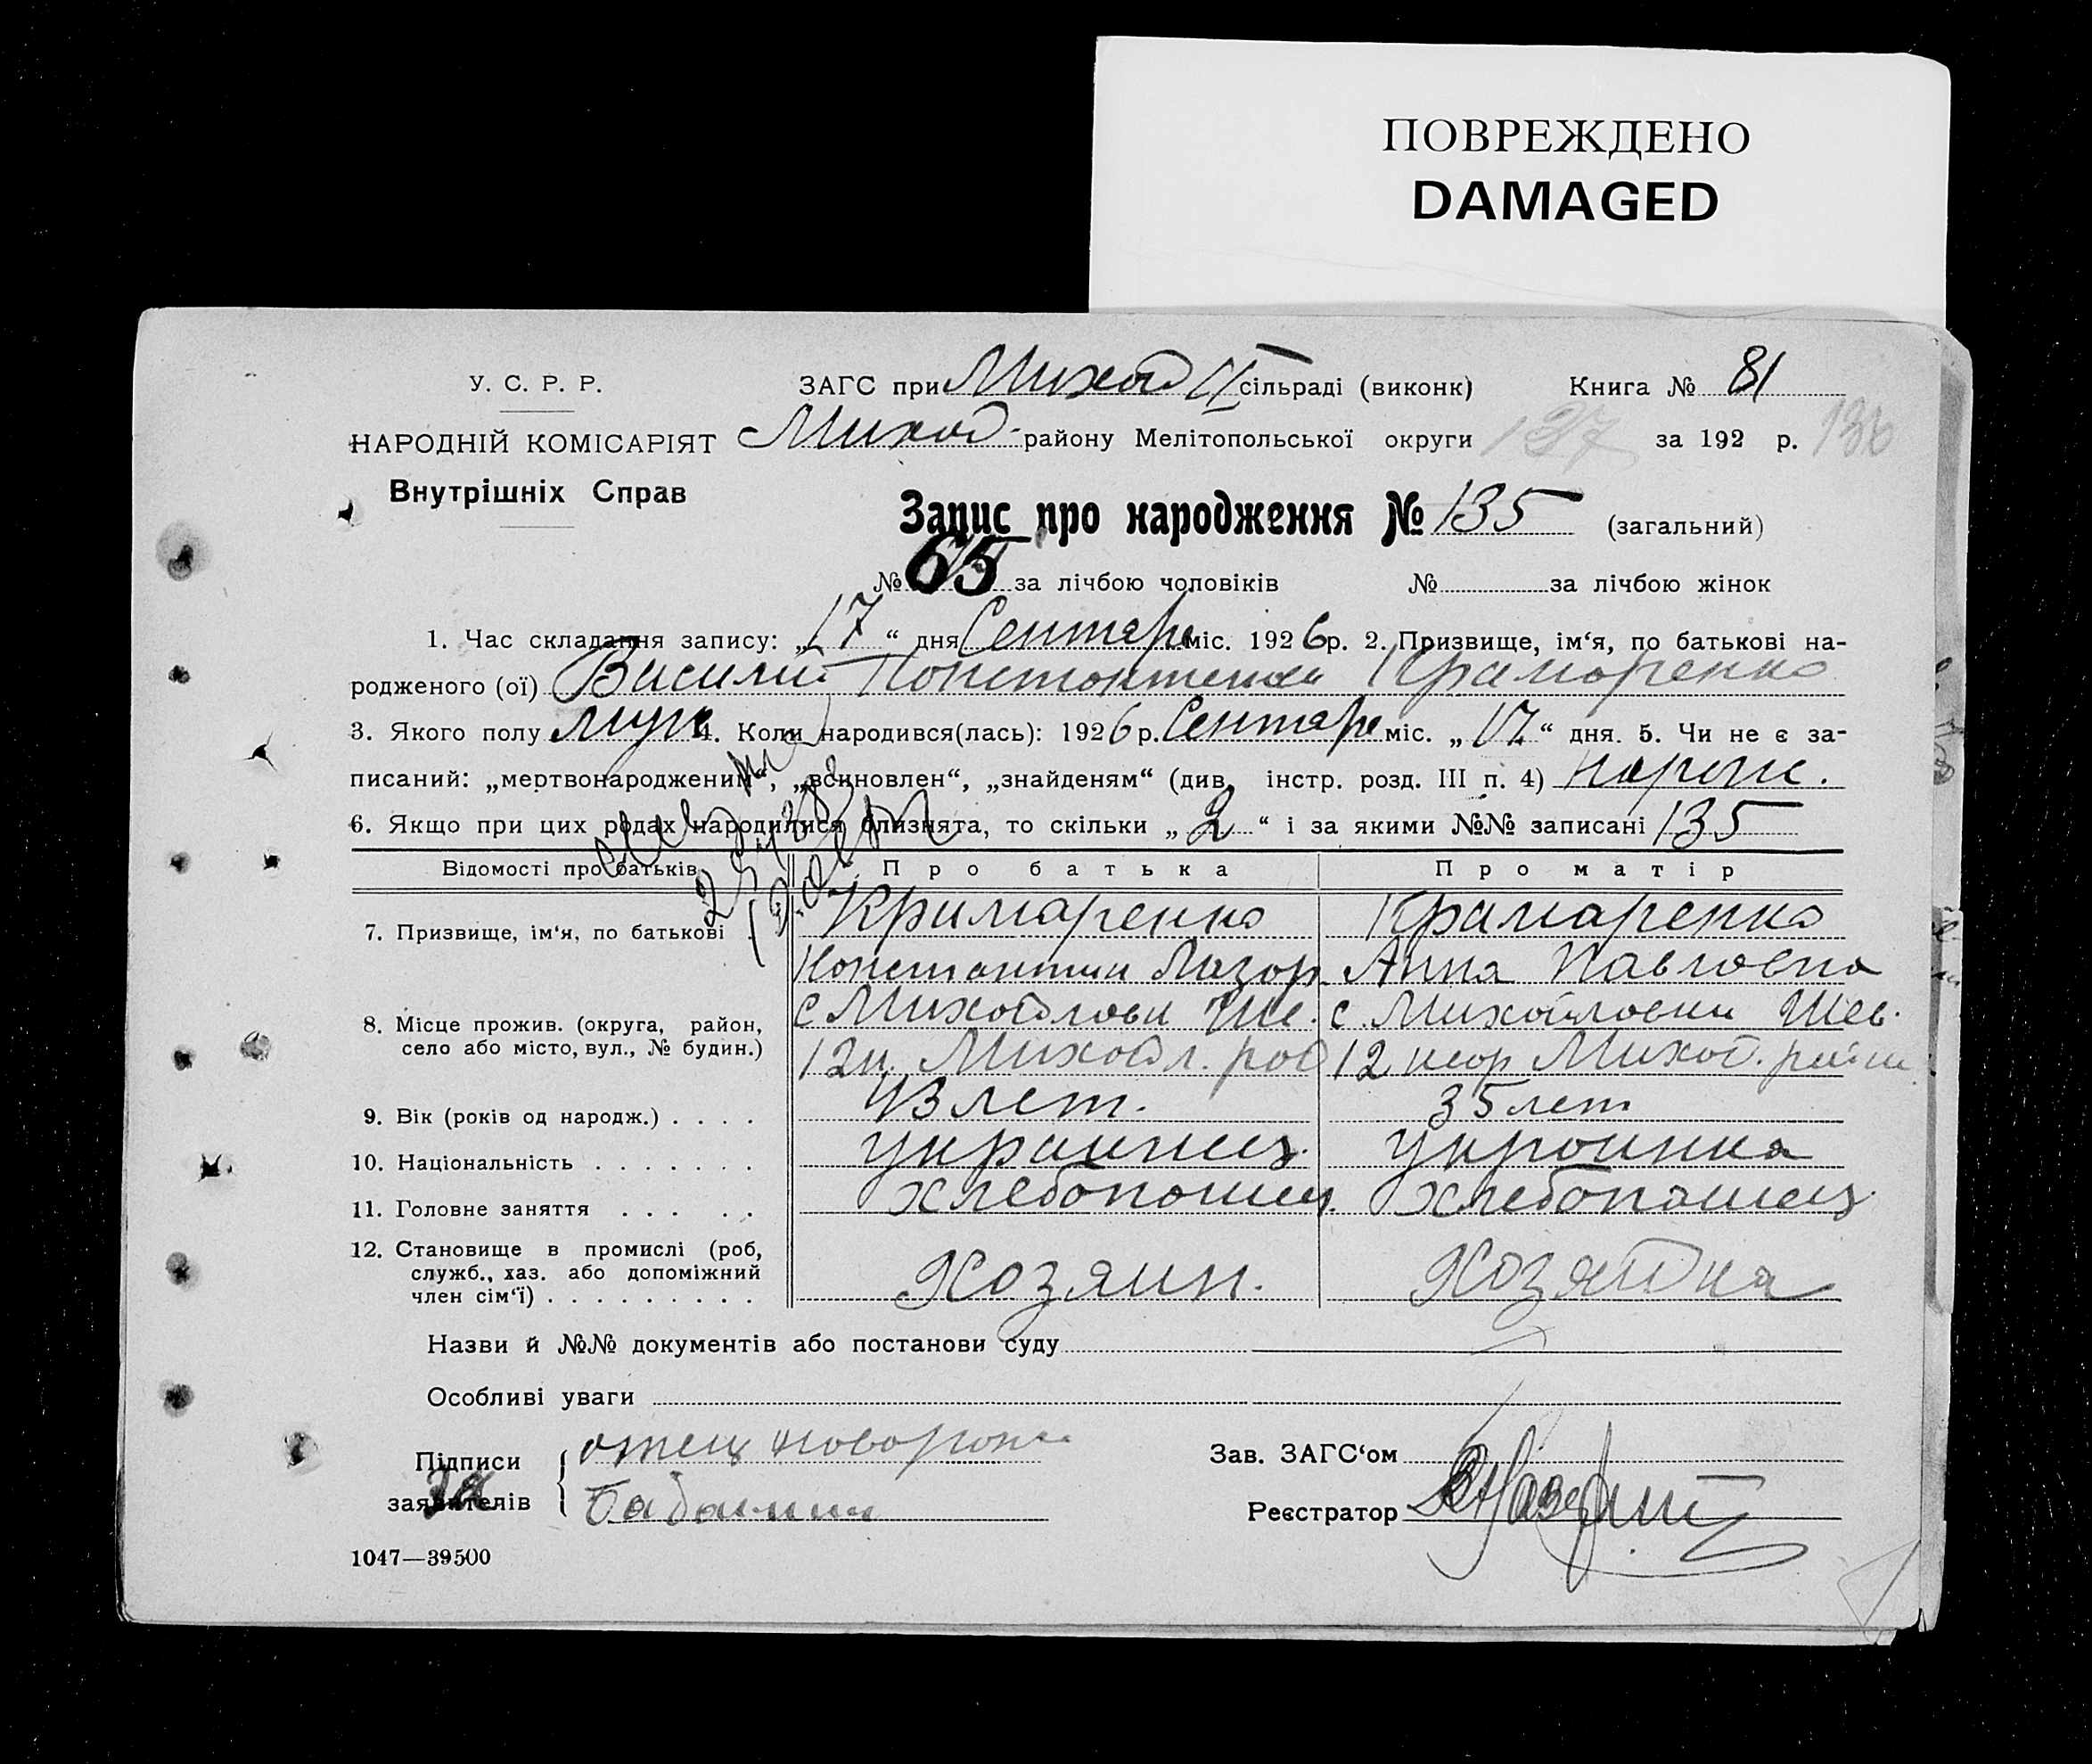 ПОВРЕЖДЕНО
DAMAGED
У. С. Р. Р.
ЗАГС при Михай II сільраді (виконк) Книга № 81
НАРОДНІЙ КОМІСАРІЯТ Михай. району Мелітопольської округи 137 за 192 р. 136
Внутрішніх Справ
Запис про народження № 135 (загальний)
№ 65 за лічбою чоловіків № за лічбою жінок
1. Час складання запису: „17“ дня Сентяр міс. 1926 р. 2. Призвище, ім‘я, по батькові на-
родженого (ої) Василий Константинов Крамаренко
3. Якого полу муж 4. Коли народився(лась): 1926 р. Сентяр міс. „17“ дня. 5. Чи не є за-
писаний: „мертвонародженим“, „всиновлен“, „знайденям“ (див. інстр. розд. III п. 4)
6. Якщо при цих родах народилися близнята, то скільки „2“ і за якими №№ записані 135
Відомості про батьків Про батька Про матір
7. Призвище, ім‘я, по батькові Крамаренко Крамаренко
Константин Лазор. Анна Павловна
8. Місце прожив. (округа, район, с Михайловки Ше. с. Михайловки Шев.
село або місто, вул., № будин.) 12 Михайл. рай 12 Михай. район
9. Вік (років од народж.) . . . . 43 лет. 35 лет
10. Національність . . . . . . . украинец. украинка
11. Головне заняття . . . . . хлебопашец. хлебопашец.
12. Становище в промислі (роб,
служб., хаз. або допоміжний Хозяин. Хозяйка
член сім‘ї) . . . . . . . . .
Назви й №№ документів або постанови суду
Особливі уваги
Підписи отец новорожд
Зав. ЗАГС‘ом
заявителів
Реєстратор
1047—39500